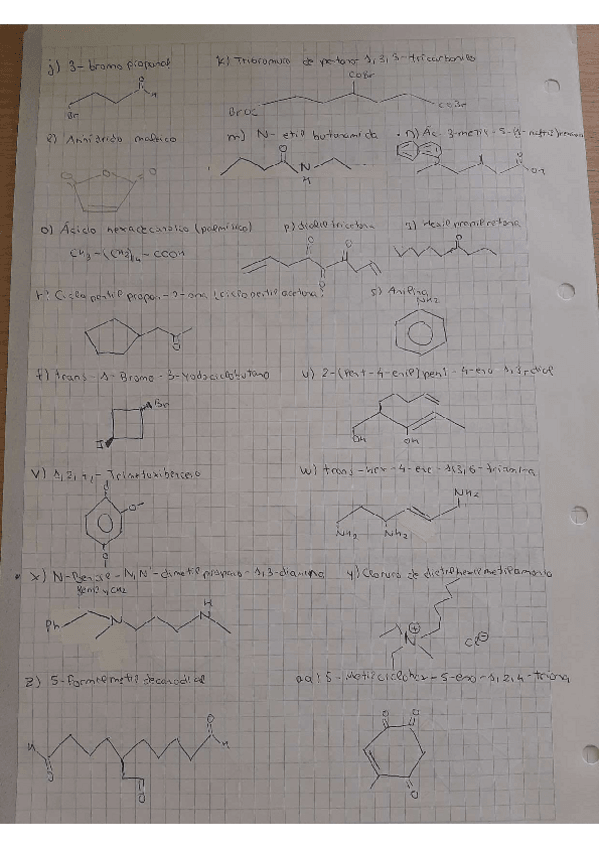 j) 3-bromo propanal
k) Tribromuro de 1,3,3-tricarbonilo
O
H
Br
COBr
BrOC
COBr
l) Anhídrido maleico
m) N-etil butanamida
n) Ác. 3-metil-5-
O
O
O
O
N
H
O
OH
o) Ácido hexadecanoico (palmítico)
p) dialil tricetona
q) Hexil propil cetona
CH3-(CH2)14-COOH
O
O
O
O
r) Ciclopentil propan-2-ona (ciclopentil acetona)
s) Anilina
NH2
O
t) trans-1-Bromo-3-yodociclobutano
u) 2-(pent-4-enil) pent-4-eno-1,3-diol
Br
I
OH
OH
v) 1,2,4-Trimetoxibenceno
w) trans-hex-4-ene-1,3,6-triamina
O
O
O
NH2
NH2
NH2
x) N-Bencil-N,N'-dimetil propano-1,3-diamina
y) Cloruro de dietilhexilmetilamonio
Ph
N
H
N
N
Cl
z) 5-formilmetil decanodial
aa) 5-Metilciclohex-5-eno-1,2,4-triona
H
O
O
H
O
O
O
O